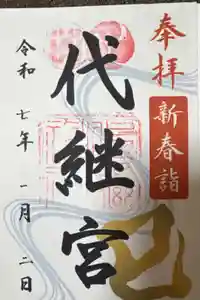 奉拝
新春詣
代継宮
令和七年一月二日
巳